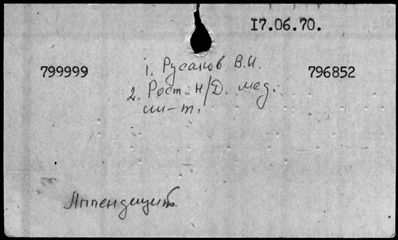 17.06.70.
799999
1. Русаков В.И.
796852
2. Рост. н/Д. мед.
ин-т.
Аппендицит.